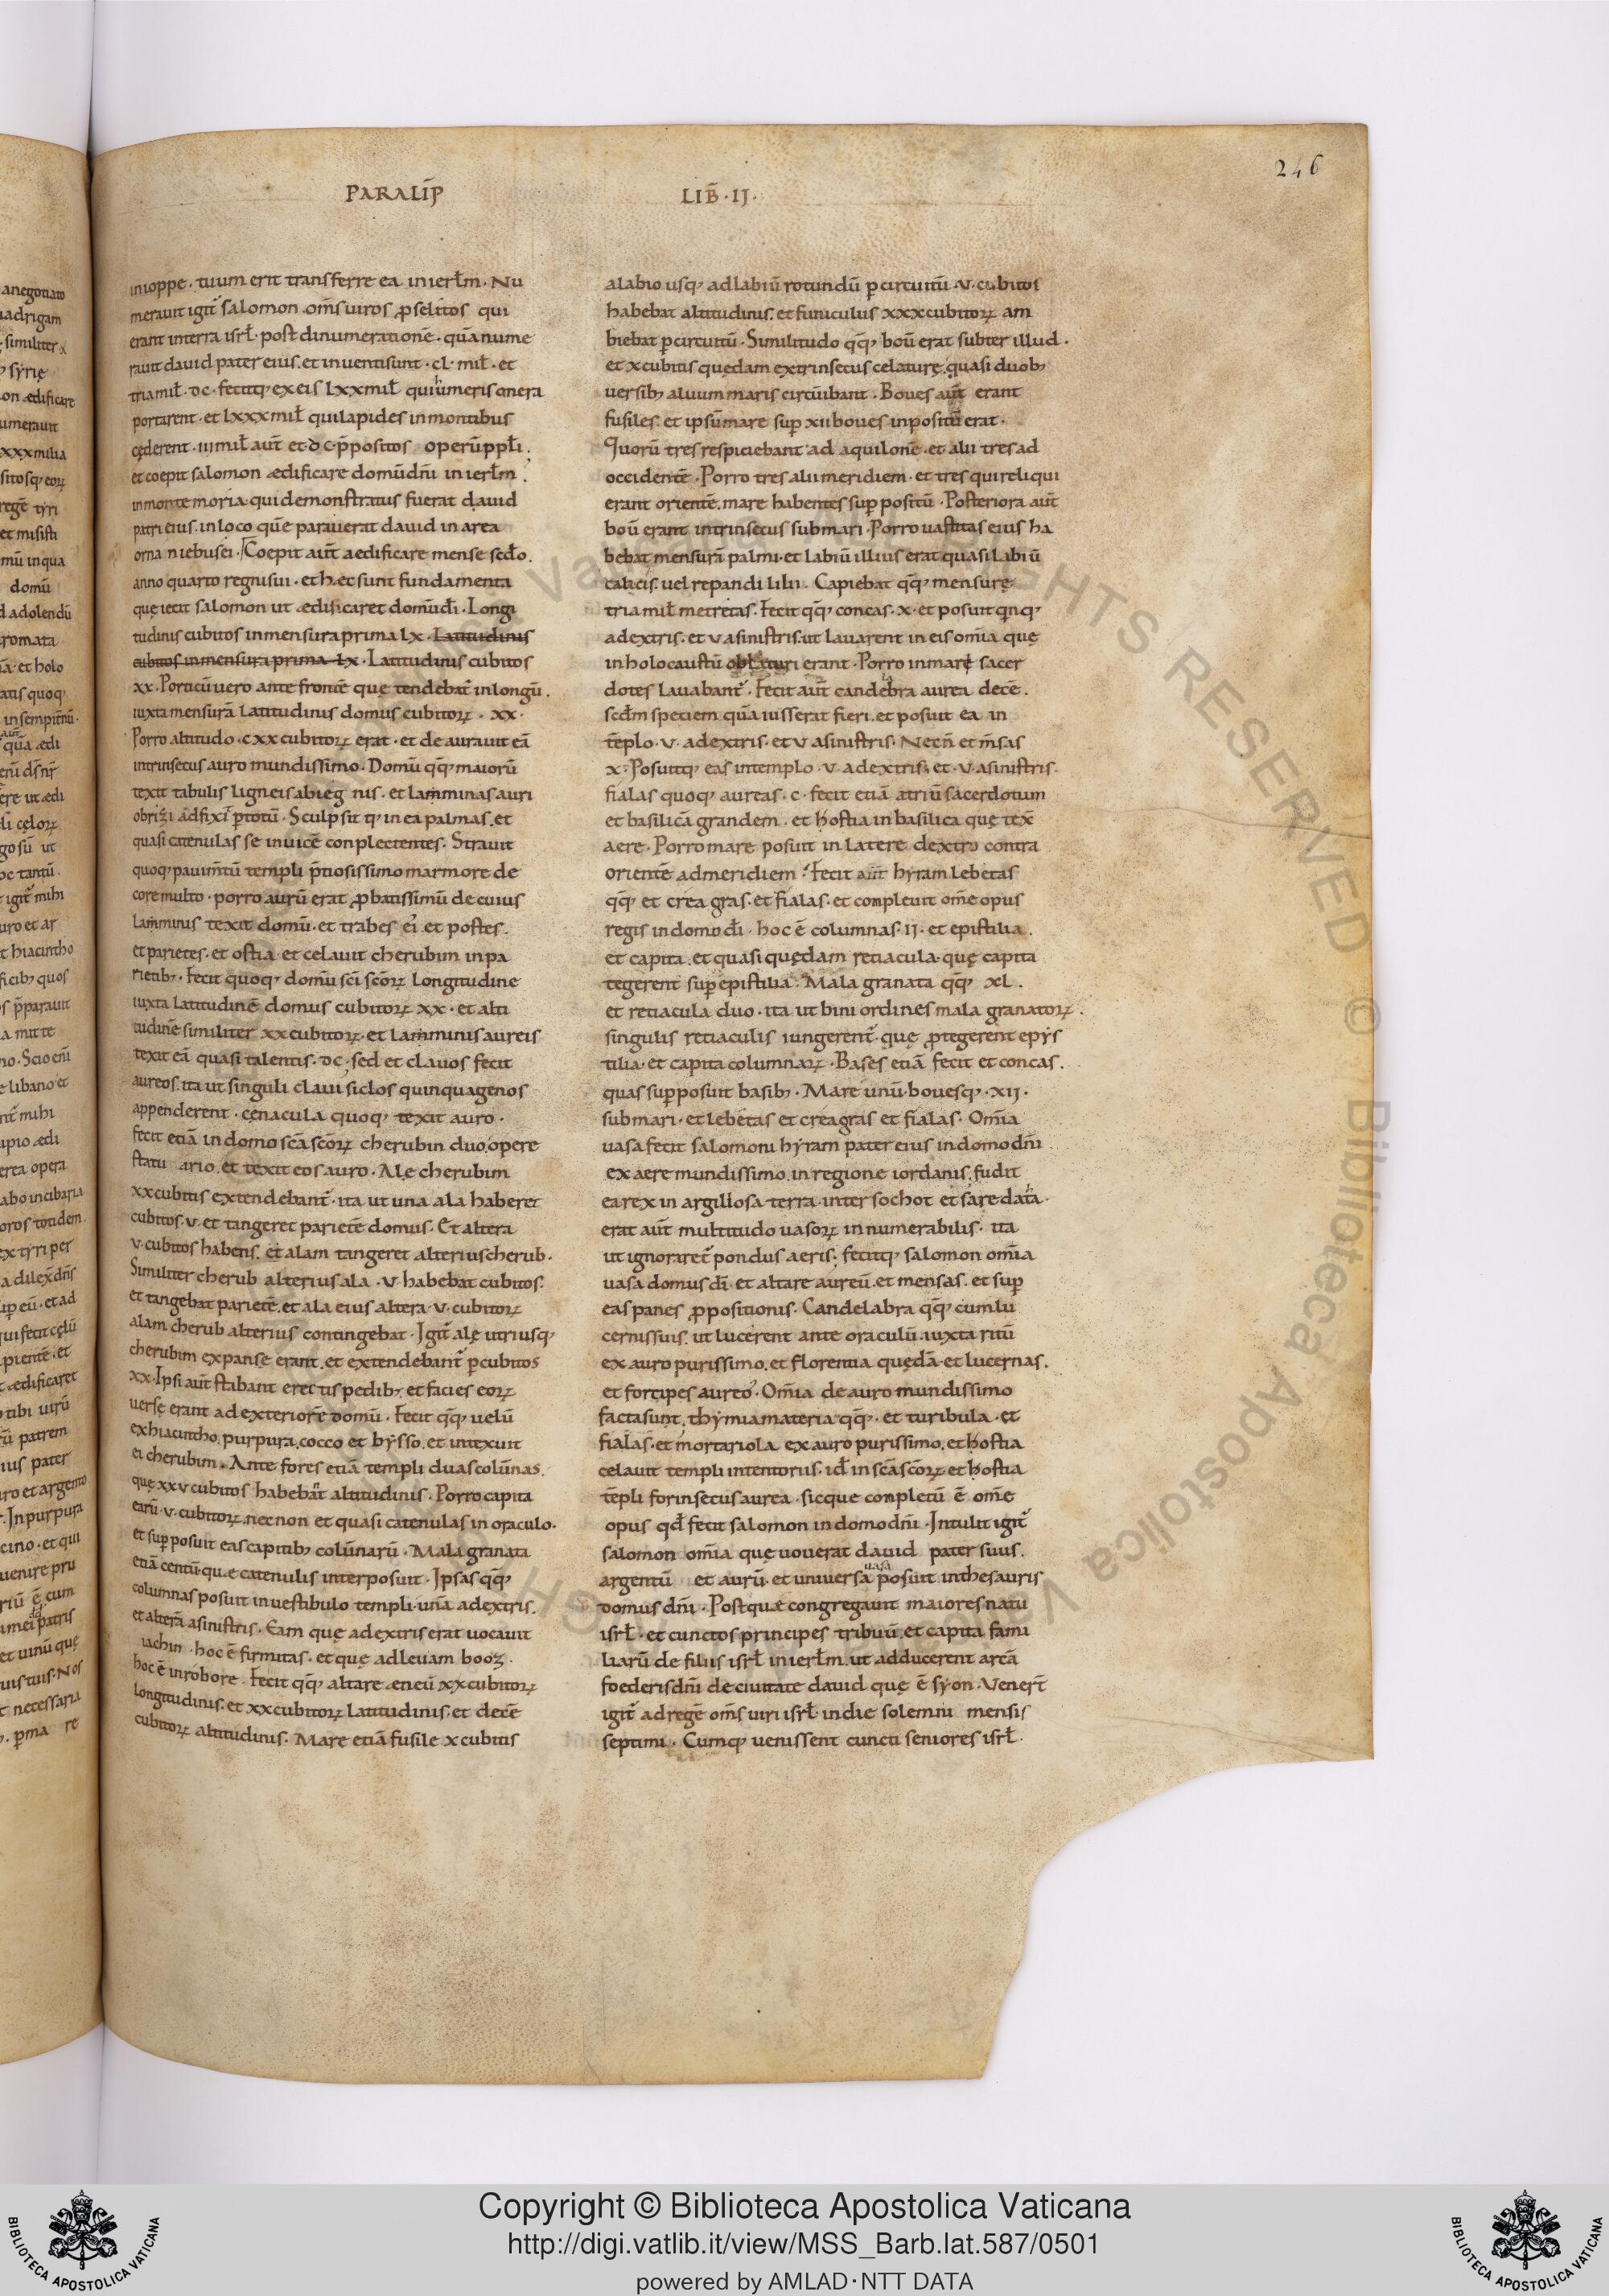 246
PARALIP̄ LIB̄·IJ·
inioppe· tuum erit transferre ea in ierłm· Nu
merauit igit᷒ salomon om̄s uiros p̱selitos qui
erant interra isrł· post dinumeratione᷒· quānume
rauit dauid pater eius. et inuentisunt· cL· mił· et
triamił· dc· fecitq; exeis Lxxmił qui humeris onera
portarent· et Lxxxmił quilapides inmontibus
cęderent· iii mił aut̄ et·dc·p̄positos operūppłi·
et coepit salomon ædificare domūdn̄i in ierłm·
inmonte moria· qui demonstratus fuerat dauid
patri eius. inloco quē parauerat dauid in area
ornan iebusei· Coepit aut̄ aedificare mense scd̄o.
anno quarto regnisui· et hęc sunt fundamenta
quę iecit salomon ut ædificaret domūdī· Longi
tudinis cubitos inmensura prima Lx· Latitudinis
cubitos inmensura prima Lx· Latitudinis cubitos
xx· Porticū uero ante frontē quę tendebat᷒ inlongū.
iuxta mensurā latitudinis domus cubitoꝝ· xx·
Porro altitudo· cxx cubitoꝝ erat· et de aurauit eā
intrinsecus auro mundissimo· Domū qq̄; maiorū
texit tabulis ligneis abieg nis· et lam̄minas auri
obrizi adfixit p̱totū· Sculpsit q; in ea palmas. et
quasi catenulas se inuicē conplectentes· Strauit
quoq; pauim̄tū templi p̄tiosissimo marmore de
core multo· porro aurū erat p̱batissimū de cuius
lam̄minis texit domū· et trabes ei᷒ et postes.
et parietes· et ostia· et celauit cherubim inpa
rietib;· Fecit quoq; domū sc̄i sc̄oꝝ longitudine
iuxta latitudinē domus cubitoꝝ xx· et alti
tudinē similiter xx cubitoꝝ· et lam̄minis aureis
texit eā quasi talentis· dc· sed et clauos fecit
aureos. ita ut singuli claui siclos quinquagenos
appenderent· cęnacula quoq; texit auro·
fecit etiā in domo sc̄a sc̄oꝝ cherubin duo. opere
statu ario. et texit eos auro· Alę cherubim
xx cubitis extendebant᷒· ita ut una ala haberet
cubitos· v· et tangeret parietē domus· Et altera
v· cubitos habens. et alam tangeret alteriuscherub·
Similiter cherub alterius ala· v· habebat cubitos.
et tangebat parietē. et ala eius altera· v· cubitoꝝ
alam cherub alterius contingebat· Igit᷒ alę utriusq;
cherubim expanse erant. et extendebant᷒ p̱cubitos
xx· Ipsi aut̄ stabant erectis pedib;· et facies eoꝝ
uersę erant ad exteriorē domū· Fecit qq̄; uelū
exhiacintho. purpura. cocco et bysso. et intexuit
ei cherubim· Ante fores etiā templi duas colūnas.
quę xxv cubitos habebāt altitudinis· Porro capita
earū· v· cubitoꝝ. nec non et quasi catenulas in oraculo·
et sup̱posuit eas capitib; colūnarū· Mala granata
etiā centū· quę catenulis interposuit· Ipsas qq̄;
columnas posuit in uestibulo templi· unā adextris.
et alterā asinistris. Eam quę adextris erat uocauit
iachin· hoc ē firmitas. et quę adleuam booz·
hoc ē inrobore· Fecit qq̄; altare æneū xx cubitoꝝ
longitudinis. et xx cubitoꝝ latitudinis. et decē
cubitoꝝ altitudinis· Mare etiā fusile x cubitis
alabio usq; adlabiū rotundū p̱circuitū· v· cubitos
habebat altitudinis. et funiculus xxx cubitoꝝ am
biebat p̱circuitū· Similitudo qq̄; boū erat subter illud·
et x cubitis quędam extrinsecus celaturę. quasi duob;
uersib; aluum maris circūibant· Boues aut̄ erant
fusiles. et ipsūmare sup̱ xii boues inpositū erat·
Quorū tres respiciebant ad aquilonē· et alii tres ad
occidentē· Porro tres alii meridiem· et tres qui reliqui
erant orientē. mare habentes sup̱ positū· Posteriora aut̄
boū erant intrinsecus submari· Porro uastitas eius ha
bebat mensurā palmi· et labiū illius erat quasi labiū
calicis. uel repandi lilii· Capiebat qq̄; mensurę
tria mił metretas. Fecit qq̄; concas· x· et posuit qn̄q;
adextris. et v asinistris. ut lauarent in eis om̄ia quę
in holocaustū oblaturi erant· Porro in mare sacer
dotes lauabant᷒· Fecit aut̄ candelabra aurea decē·
scd̄m speciem quā iusserat fieri. et posuit ea in
tēplo· v· adextris· et v asinistris· Necn̄ et m̄sas
x· Posuitq; eas intemplo· v· adextris· et· v· asinistris·
fialas quoq; aureas· c· fecit etiā atriū sacerdotum
et basilicā grandem· et hostia in basilica quę tex̄
aere· Porro mare posuit in latere dextro contra
orientē admeridiem· Fecit aut̄ hyram lebetas
qq̄; et creagras· et fialas· et compleuit om̄e opus
regis indomo dī· hoc ē columnas· ii· et epistilia.
et capita. et quasi quędam retiacula· quę capita
tegerent sup̱ epistilia· Mala granata qq̄; xL·
et retiacula duo· ita ut bini ordines mala granatoꝝ·
singulis retiaculis iungerent᷒· quę p̱tegerent epys
tilia· et capita columnaꝝ· Bases etiā fecit et concas.
quas sup̱posuit basib;· Mare unū· bouesq;· xii·
submari· et lebetas et creagras et fialas· Om̄ia
uasa fecit salomoni hyram pater eius in domo dn̄i
ex aere mundissimo. in regione iordanis. fudit
ea rex in argillosa terra· inter sochot et saredatha·
erat aut̄ multitudo uasoꝝ innumerabilis· ita
ut ignoraret᷒ pondus aeris· fecitq; salomon om̄ia
uasa domus dī· et altare aureū. et mensas. et sup̱
eas panes p̱positionis· Candelabra qq̄; cumlu
cernissuis. ut lucerent ante oraculū. iuxta ritū
ex auro purissimo. et florentia quędā· et lucernas.
et forcipes aureos· Om̄ia de auro mundissimo
factasunt. thymiamateria qq̄;· et turibula· et
fialas· et mortariola ex auro purissimo. et hostia
celauit templi interioris· id̄ in sc̄a sc̄oꝝ· et hostia
tēpli forinsecus aurea· sicque completū ē om̄e
opus qd̄ fecit salomon in domo dn̄i· Intulit igit᷒
salomon om̄ia quę uouerat dauid pater suus.
argentū et aurū. et uniuersa uasa posuit inthesauris
domus dn̄i· Postquæ congregauit maiores natu
isrł· et cunctos principes tribuū. et capita fami
liarū de filiis isrł in ierłm. ut adducerent arcā
foederis dn̄i de ciuitate dauid quę ē syon· Venert̄
igit᷒ ad regē om̄s uiri isrł· in die solemni mensis
septimi· Cumq; uenissent cuncti seniores isrł·
Copyright © Biblioteca Apostolica Vaticana
http://digi.vatlib.it/view/MSS_Barb.lat.587/0501
powered by AMLAD·NTT DATA